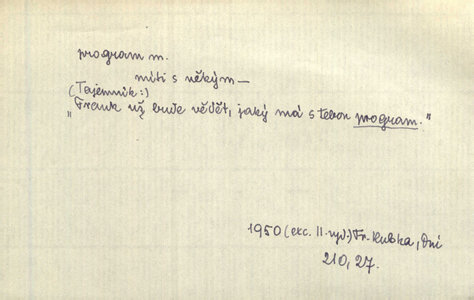 program m.
míti s někým —
(Tajemník:)
„Frank už bude vědět, jaký má s tebou program."
1950 (exc. II. vyd.) Fr. Kubka, Dní
210, 27.